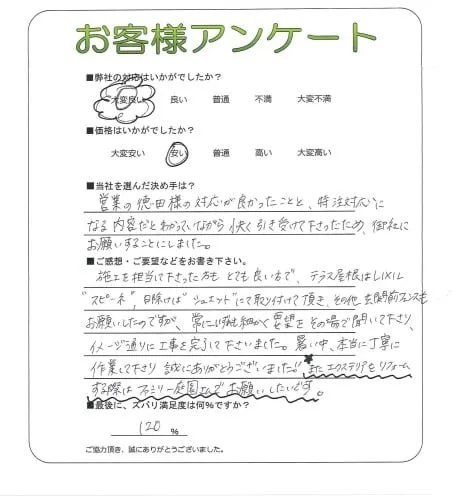 お客様アンケート
■弊社の対応はいかがでしたか?
大変良い 良い 普通 不満 大変不満
■価格はいかがでしたか?
大変安い 安い 普通 高い 大変高い
■当社を選んだ決め手は?
営業の徳田様の対応が良かったことと、特注対応に
なる内容だとわかっていながら快く引き受けて下さったため、御社に
お願いすることにしました。
■ご感想・ご要望などをお書き下さい。
施工を担当して下さった方も とても良い方で、テラス屋根はLIXIL
"スピーネ",日除けは"シュエット"にて取り付けて頂き、その他、玄関前フェンスも
お願いしたのですが、常に 細かく要望をその場で聞いて下さり、
イメージ通りに工事を完了して下さいました。暑い中、本当に丁寧に
作業して下さり 誠にありがとうございました!!★またエクステリアをリフォーム
する際はファミリー庭園さんでお願いしたいです。
■最後に、ズバリ満足度は何%ですか?
120 %
ご協力頂き、誠にありがとうございました。